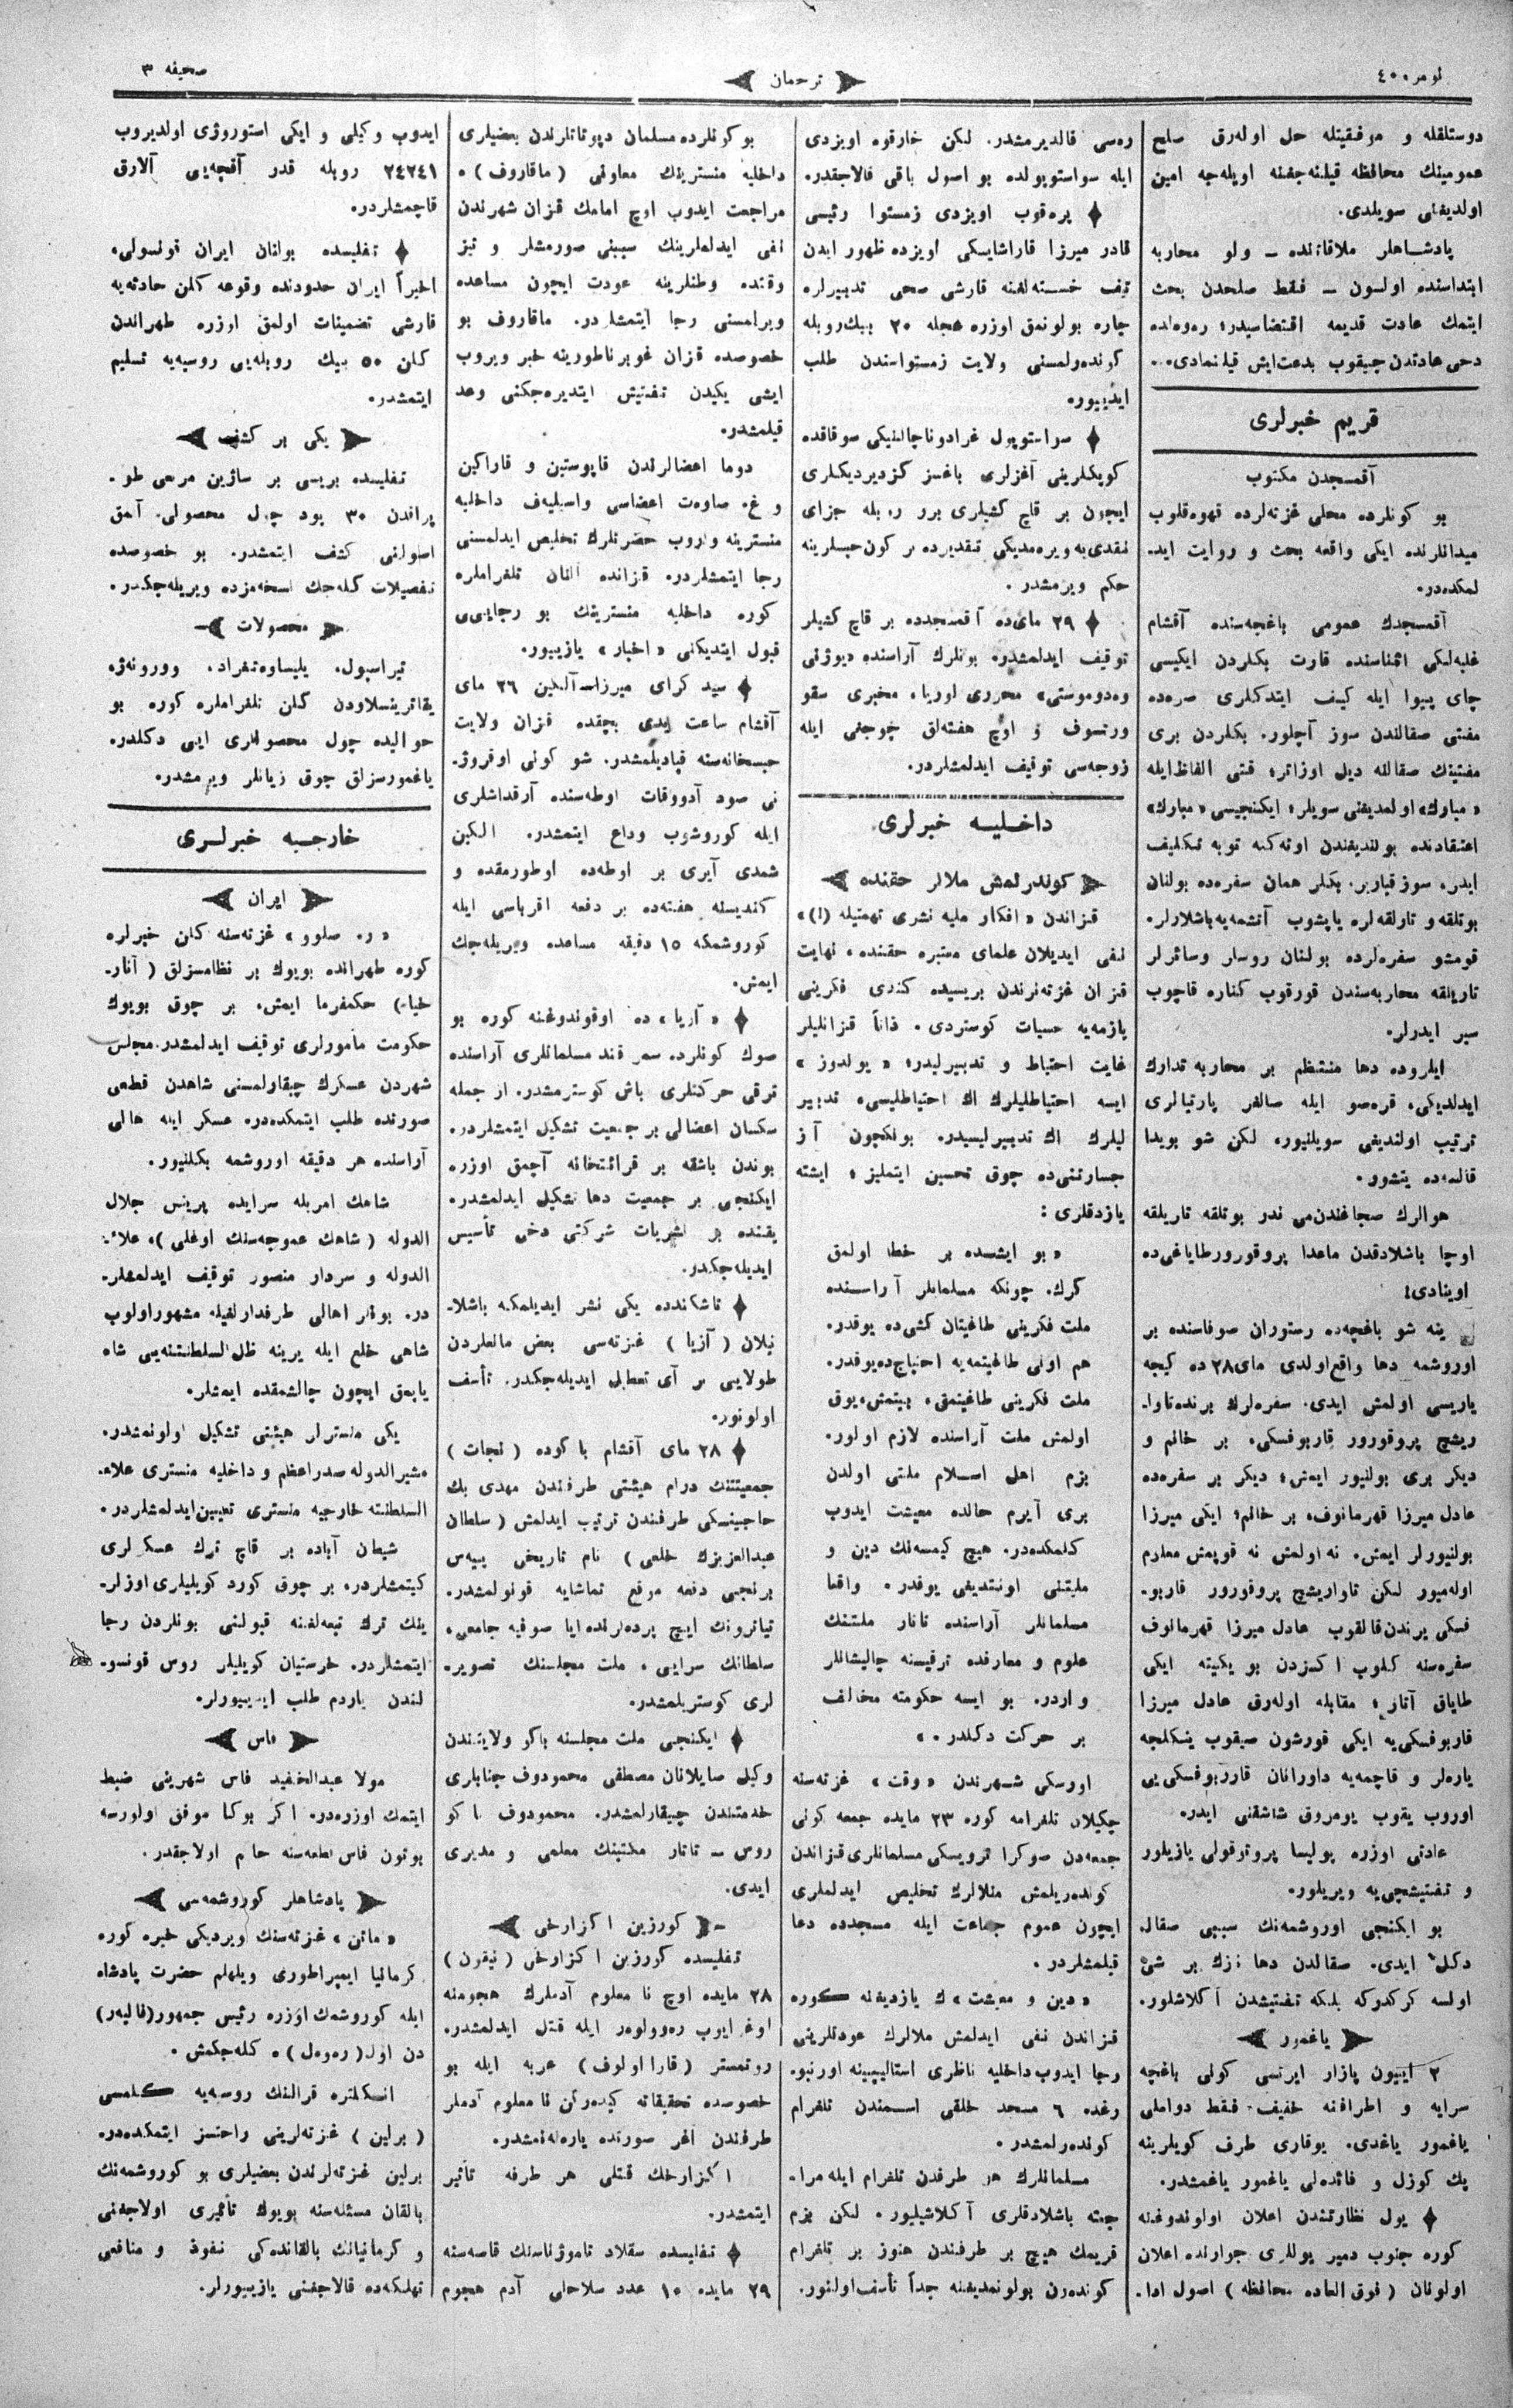 نومر ٤٠٠
ترجمان
صحیفه ٣
دوستلقله و موفقیتله حل اوله‌رق صلح
عمومینك محافظه قیلنه‌جغنه اویله‌جه امین
اولدیغنی سویلدی.
پادشاهلر ملاقاتنده ــ ولو محاربه
ابتداسنده اولسون ــ فقط صلحدن بحث
ایتمك عادت قدیمه اقتضاسیدر؛ ره‌وه‌لده
دخی عادتدن چیقوب بدعت‌ایش قیلنمادی...
قریم خبرلری
آقمسجدن مکتوب
بو کونلرده محلی غزته‌لرده قهوه‌قلوب
میدانلرنده ایکی واقعه بحث و روایت اید‌ـ
لمکده‌در.
آقمسجدك عمومی باغچه‌سنده آقشام
غلبه‌لکی اثناسنده قارت بکلردن ایکیسی
چای پیوا ایله کیف ایتدکلری صره‌ده
مفتی صقالندن سوز آچلور. بکلردن بری
مفتینك صقالنه دیل اوزاتر؛ قتی الفاظ‌ایله
«مبارك» اولمدیغنی سویلر؛ ایکنجیسی «مبارك»
اعتقادنده بولندیغندن اوته‌کنه توبه تکلیف
ایدر. سوز قباریر. بکلر همان سفره‌ده بولنان
بوتلقه و تارلقه‌لره یاپشوب آتشمه‌یه‌باشلارلر.
قومشو سفره‌لرده بولنان روسلر وسائرلر
تاریلقه محاربه‌سندن قورقوب کناره قاچوب
سیر ایدرلر.
ایلروده دها منتظم بر محاربه تدارك
ایدلدیکی، قره‌صو ایله صالغر پارتیالری
ترتیب اولندیغی سویلنیور، لکن شو بویدا
قالسه‌ده یتشور.
هوالرك صجاغندن‌می ندر بوتلقه تاریلقه
اوچا باشلادقدن ماعدا پروقورورطایاغی‌ده
اوینادی!
ینه شو باغچه‌ده رستوران صوفاسنده بر
اوروشمه دها واقع‌اولدی مای٢٨ ده کیجه
یاریسی اولمش ایدی. سفره‌لرك برنده‌تاوا‌ـ
ریشچ پروقورور قاربوفسکی، بر خانم و
دیکر بری بولنیور ایمش؛ دیکر بر سفره‌ده
عادل میرزا قهرمانوف، بر خانم؛ ایکی میرزا
بولنیورلر ایمش. نه اولمش نه قوپمش معلوم
اوله‌میور لکن تاواریشچ پروقورور قاربو‌ـ
فسکی یرندن‌قالقوب عادل میرزا قهرمانوف
سفره‌سنه کلوب اکسزدن بو یکیته ایکی
طایاق آتار؛ مقابله اوله‌رق عادل میرزا
قاربوفسکی‌یه ایکی قورشون صیقوب ینکلجه
یاره‌لر و قاچمه‌یه داورانان قاربوفسکی‌یی
اوروب یقوب یومروق شاشقنی ایدر.
عادتی اوزره پولیسا پروتوقولی یازیلور
و تفتیشچی‌یه ویریلور.
بو ایکنجی اوروشمه‌نك سببی صقال
دکل ایدی. صقالدن دها نزك بر شئ
اولسه کرکدوکه بلکه تفتیشدن اکلاشلور.
یاغمور
٢ اییون پازار ایرتسی کونی باغچه
سرایه و اطرافنه خفیف، فقط دواملی
یاغمور یاغدی. یوقاری طرف کویلرینه
پك کوزل و فائده‌لی یاغمور یاغمشدر.
یول نظارتندن اعلان اولوندوغنه
کوره جنوب دمیر یوللری جوارنده اعلان
اولونان (فوق العاده محافظه) اصول ادا‌ـ
ره‌سی قالدیرمشدر. لکن خارقوه اویزدی
ایله سواستوپولده بو اصول باقی قالاجقدر.
پره‌قوب اویزدی زمستوا رئیسی
قادر میرزا قاراشایسکی اویزده ظهور ایدن
تیف خسته‌لغنه قارشی صحی تدبیرلره
چاره بولونمق اوزره عجله ٢٠ بیك‌روبله
کونده‌رلمسنی ولایت زمستواسندن طلب
ایدییور.
سواستوپول غرادوناچالنیکی سوقاقده
کوپکلرینی آغزلری باغسز کزدیردیکلری
ایچون بر قاچ کشیلری برر روبله جزای
نقدی‌یه ویره‌مدیکی تقدیرده بر کون‌حبسلرینه
حکم ویرمشدر.
٢٩ مای‌ده آقمسجدده بر قاچ کشیلر
توقیف ایدلمشدر. بونلرك آراسنده «یوژنی
وه‌دوموستی» محرری لوریا، مخبری سقو
ورتسوف و اوچ هفته‌لق چوجغی ایله
زوجه‌سی توقیف ایدلمشلردر.
داخلیه خبرلری
کوندرلمش ملالر حقنده
قزاندن «افکار ملیه نشری تهمتیله (!)»
نفی ایدیلان علمای معتبره حقنده، نهایت
قزان غزته‌لرندن بریسیده کندی فکرینی
یازمه‌یه حسیات کوستردی. ذاتاً قزانلیلر
غایت احتیاط و تدبیرلیدر؛ «یولدوز»
ایسه احتیاطلیلرك اك احتیاطلیسی، تدبیر
لیلرك اك تدبیرلیسیدر. بونکچون آز
جسارتنی‌ده چوق تحسین ایتملیز؛ ایشته
یازدقلری:
«بو ایشده بر خطا اولمق
کرك. چونکه مسلمانلر آراسنده
ملت فکرینی طاغیتان کشی‌ده یوقدر.
هم اونی طاغیتمه‌یه احتیاج‌ده‌یوقدر.
ملت فکرینی طاغیتمق، بیتمش، یوق
اولمش ملت آراسنده لازم اولور.
بزم اهل اسلام ملتی اولدن
بری آیرم حالده معیشت ایدوب
کلمکده‌در. هیچ کیمسه‌نك دین و
ملیتنی اونتدیغی یوقدر. واقعا
مسلمانلر آراسنده تاتار ملتنك
علوم و معارفده ترقیسنه چالیشانلر
واردر. بو ایسه حکومته مخالف
بر حرکت دکلدر.»
اورسکی شهرندن «وقت» غزته‌سنه
چکیلان تلغرامه کوره ٢٣ مایده جمعه کونی
جمعه‌دن صوکرا ترویسکی مسلمانلری قزاندن
کونده‌ریلمش منلالرك تخلیص ایدلملری
ایچون عموم جماعت ایله مسجدده دعا
قیلمشلردر.
«دین و معیشت»ك یازدیغنه کوره
قزاندن نفی ایدلمش ملالرك عودتلرینی
رجا ایدوب داخلیه ناظری استالیپینه اورنبو‌.
رغده ٦ مسجد خلقی اسمندن تلغرام
کونده‌رلمشدر.
مسلمانلرك هر طرفدن تلغرام ایله مرا‌ـ
جعته باشلادقلری آکلاشیلیور. لکن بزم
قریمك هیچ بر طرفندن هنوز بر تلغرام
کونده‌رن بولونمدیغنه جداً تأسف‌اولنور.
بو کونلرده مسلمان دپوتاتلرندن بعضیلری
داخلیه منسترینك معاونی (ماقاروف).
مراجعت ایدوب اوچ امامك قزان شهرندن
نفی ایدلملرینك سببنی صورمشلر و تیز
وقتده وطنلرینه عودت ایچون مساعده
ویرلمسنی رجا ایتمشلردر. ماقاروف بو
خصوصده قزان غوبرناطورینه خبر ویروب
ایشی یکیدن تفتیش ایتدیره‌جکنی وعد
قیلمشدر.
دوما اعضالرندن قاپوستین و قاراکین
و غ. صاوه‌ت اعضاسی واسیلیه‌ف داخلیه
منسترینه واروب حضرتلرك تخلیص ایدلمسنی
رجا ایتمشلردر. قزانده النان تلغراملره
کوره داخلیه منسترینك بو رجایی‌ی
قبول ایتدیکنی «اخبار» یازییور.
سید کرای میرزا‌ــ‌آلکین ٢٦ مای
آقشام ساعت یدی بچقده قزان ولایت
حبسخانه‌سنه قپادیلمشدر. شو کونی اوقروژ‌ـ
نی صود آدووقات اوطه‌سنده آرقداشلری
ایله کوروشوب وداع ایتمشدر. الکین
شمدی آیری بر اوطه‌ده اوطورمقده و
کندیسنه هفته‌ده بر دفعه اقرباسی ایله
کوروشمکه ١٥ دقیقه مساعده ویریله‌جك
ایمش.
«آزیا» ده اوقوندوغنه کوره بو
صوك کونلرده سمرقند مسلمانلری آراسنده
ترقی حرکتلری باش کوسترمشدر. از جمله
سکسان اعضالی بر جمعیت تشکیل ایتمشلردر.
بوندن باشقه بر قرائتخانه آچمق اوزره
ایکنجی بر جمعیت دها تشکیل ایدلمشدر.
یقنده بر نشریات شرکتی دخی تأسیس
ایدیله‌جکدر.
تاشکندده یکی نشر ایدیلمکه باشلا‌ـ
نیلان (آزیا) غزته‌سی بعض مانعلردن
طولایی بر آی تعطیل ایدیله‌جکدر. تأسف
اولونور.
٢٨ مای آقشام باکوده (نجات)
جمعیتنك درام هیئتی طرفندن مهدی بك
حاجینسکی طرفندن ترتیب ایدلمش (سلطان
عبدالعزیزك خلعی) نام تاریخی پییه‌س
برنجی دفعه موقع تماشایه قونولمشدر.
تیاترونك ایچ پرده‌لرنده ایا صوفیه جامعی،
سلطانك سرایی، ملت مجلسنك تصویر‌ـ
لری کوستریلمشدر.
ایکنجی ملت مجلسنه باکو ولایتندن
وکیل صایلانان مصطفی محمودوف جنابلری
خدمتندن چیقارلمشدر. محمودوف باکو
روس ــ تاتار مکتبنك معلمی و مدیری
ایدی.
کورزین اکزارخی
تفلیسده کورزین اکزارخی (نیقون)
٢٨ مایده اوچ نا معلوم آدملرك هجومنه
اوغرایوب ره‌وولوه‌ر ایله قتل ایدلمشدر.
روتمستر (قارااولوف) عربه ایله بو
خصوصده تحقیقاته کیده‌رکن نا معلوم آدملر
طرفندن اغر صورتده یاره‌لنمشدر.
اکزارخك قتلی هر طرفه تأثیر
ایتمشدر.
تفلیسده سقلاد تاموژناسنك قاصه‌سنه
٢٩ مایده ١٥ عدد سلاحلی آدم هجوم
ایدوب وکیلی و ایکی استوروژی اولدیروب
٢٤٢٤١ روبله قدر آقچه‌یی آلارق
قاچمشلردر.
تفلیسده بولنان ایران قونسولی،
اخیراً ایران حدودنده وقوعه کلن حادثه‌یه
قارشی تضمینات اولمق اوزره طهراندن
کلن ٥٠ بیك روبله‌یی روسیه‌یه تسلیم
ایتمشدر.
یکی بر کشف
تفلیسده بریسی بر ساژین مربعی طو‌ـ
پراقدن ٣٠ پود چول محصولی، آلمق
اصولنی کشف ایتمشدر. بو خصوصده
تفصیلات کله‌جك نسخه‌مزده ویریله‌جکدر.
محصولات
تیراسپول، یلیساوه‌تغراد، وورونه‌ژ،
یقاترینسلاودن کلن تلغراملره کوره بو
حوالیده چول محصولاری ایی دکلدر.
یاغمورسزلق چوق زیانلر ویرمشدر.
خارجیه خبرلری
ایران
«ر. صلوو» غزته‌سنه کلن خبرلره
کوره طهرانده بویوك بر نظامسزلق (آنار‌ـ
خیا) حکمفرما ایمش. بر چوق بویوك
حکومت مأمورلری توقیف ایدلمشدر. مجلس
شهردن عسکرك چیقارلمسنی شاهدن قطعی
صورتده طلب ایتمکده‌در. عسکر ایله اهالی
آراسنده هر دقیقه اوروشمه بکلنیور.
شاهك امریله سرایده پرینس جلال
الدوله (شاهك عموجه‌سنك اوغلی)، علاء
الدوله و سردار منصور توقیف ایدلمشلر‌ـ
در. بونلر اهالی طرفدارلغیله مشهوراولوب
شاهی خلع ایله یرینه ظل‌السلطنتنه‌یی شاه
یاپمق ایچون چالشمقده ایمشلر.
یکی منسترلر هیئتی تشکیل اولونمشدر.
مشیرالدوله صدراعظم و داخلیه منستری علاء
السلطنته خارجیه منستری تعیین‌ایدلمشلردر.
شیطان آباده بر قاچ ترك عسکرلری
کیتمشلردر. بر چوق کورد کویلیلری اوزلر‌ـ
ینك ترك تبعه‌لغنه قبولنی بونلردن رجا
ایتمشلردر. خرستیان کویلیلر روس قونسو‌ـ
لندن یاردم طلب ایدییورلر.
فاس
مولا عبدالحفید فاس شهرینی ضبط
ایتمك اوزره‌در. اکر بوکا موفق اولورسه
بوتون فاس قطعه‌سنه حاکم اولاجقدر.
پادشاهلر کوروشمه‌سی
«ماتن» غزته‌سنك ویردیکی خبره کوره
کرمانیا ایمپراطوری ویلهلم حضرت پادشاه
ایله کوروشمك اوزره رئیس جمهور(فالیه‌ر)
دن اول(ره‌وه‌ل). کله‌جکمش.
انکلتره قرالنك روسیه‌یه کلمسی
(برلین) غزته‌لرینی راحتسز ایتمکده‌در.
برلین غزته‌لرندن بعضیلری بو کوروشمه‌نك
بالقان مسئله‌سنه بویوك تأثیری اولاجغنی
و کرمانیانك بالقانده‌کی نفوذ و منافعی
تهلکه‌ده قالاجغنی یازییورلر.